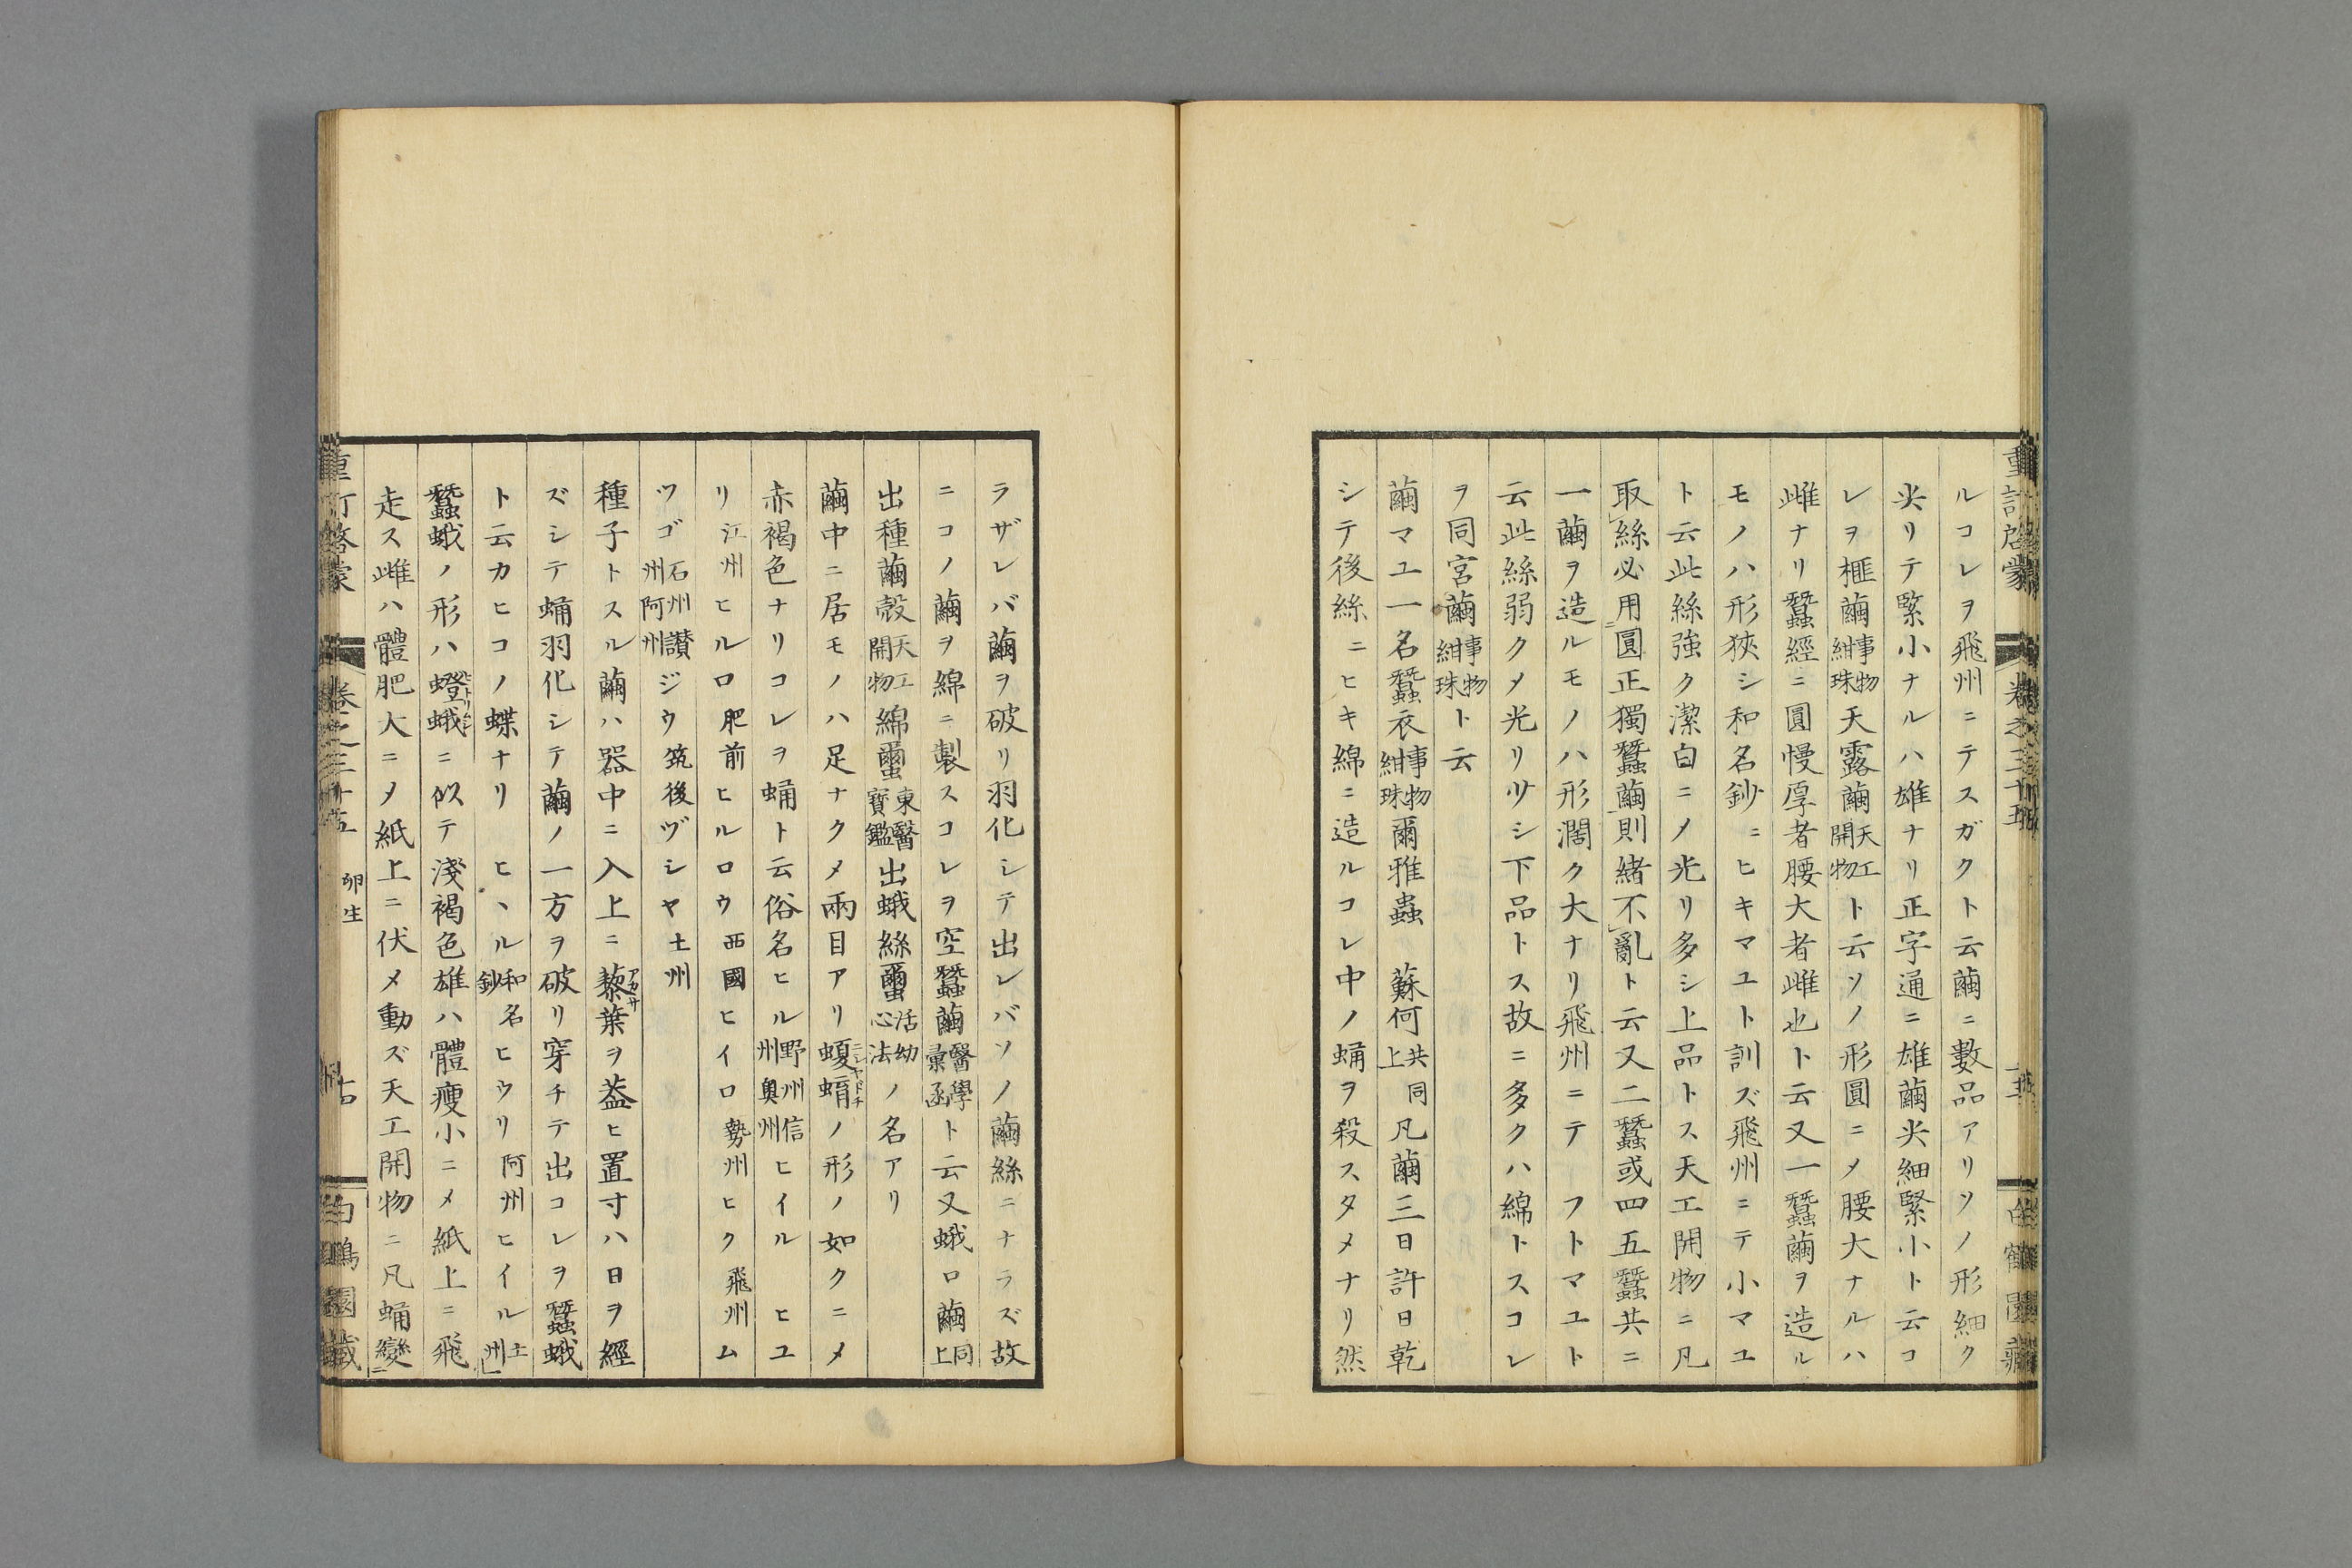 ルコレヲ飛州ニテスガクト云繭ニ數品アリソノ形細ク
尖リテ緊小ナルハ雄ナリ正字通ニ雄繭尖細緊小ト云コ
レヲ榧繭事物紺珠天露繭天工開物ト云ソノ形圓ニメ腰大ナルハ
雌ナリ蠶經ニ圓慢厚者腰大者雌也ト云又一蠶繭ヲ造ル
モノハ形狹シ和名鈔ニヒキマユト訓ズ飛州ニテ小マユ
ト云此絲強ク潔白ニノ光リ多シ上品トス天工開物ニ凡
取絲必用圓正獨蠶繭則緒不亂ト云又二蠶或四五蠶共ニ
一繭ヲ造ルモノハ形濶ク大ナリ飛州ニテ フトマユト
云此絲弱クメ光リ少シ下品トス故ニ多クハ綿トスコレ
ヲ同宮繭事物紺珠ト云
繭マユ一名蠶衣事物紺珠爾雅蟲 蘇何共同上凡繭三日許日乾
シテ後絲ニヒキ綿ニ造ルコレ中ノ蛹ヲ殺スタメナリ然
ラザレバ繭ヲ破リ羽化シテ出レバソノ繭絲ニナラズ故
ニコノ繭ヲ綿ニ製スコレヲ空蠶繭醫學彙函ト云又蛾口繭同上
出種繭殼天工開物綿蠒東醫寶鑑出蛾絲蠒活幼心法ノ名アリ
繭中ニ居モノハ足ナクメ兩目アリ蝮蜟ニシヤドチノ形ノ如クニメ
赤褐色ナリコレヲ蛹ト云俗名ヒル野州信州奥州ヒイル ヒユ
リ江州ヒルロ肥前ヒルロウ西國ヒイロ勢州ヒク飛州ム
ツゴ石州讃州阿州ジウ筑後ヅシヤ土州
種子トスル繭ハ器中ニ入上ニ藜アカザ葉ヲ葢ヒ置寸ハ日ヲ經
ズシテ蛹羽化シテ繭ノ一方ヲ破リ穿チテ出コレヲ蠶蛾
ト云カヒコノ蝶ナリ ヒヽル和名鈔ヒウリ阿州ヒイル土州
蠶蛾ノ形ハ蹬蛾ヒトリムシニ似テ淺褐色雄ハ體瘦小ニメ紙上ニ飛
走ス雌ハ體肥大ニメ紙上ニ伏メ動ズ天工開物ニ凡蛹變
重訂啓蒙 卷之三十五 卵生 白鶴園藏